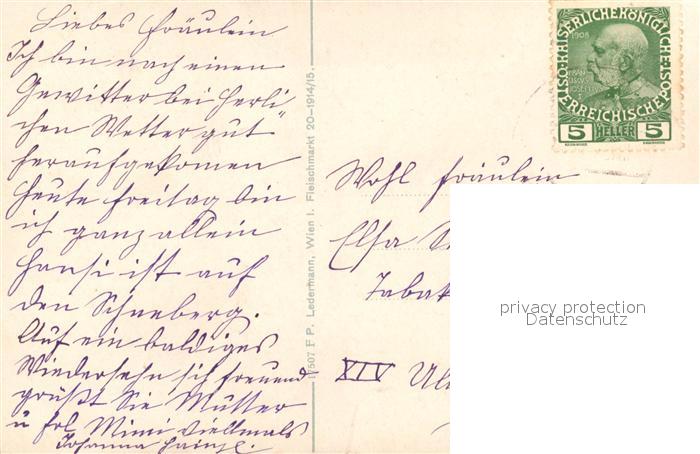 Liebes Fräulein
Ich bin nach einem
Gewitter bei herli
chen Wetter gut
heraufgekomen
heute Freitag bin
ich ganz allein
Hansi ist auf
den Schneeberg.
Auf ein baldiges
Wiedersehn sich freuend
grüßt Sie Mutter
u frl Mimi vielmals
Johanna
17507 F P. Ledermann, Wien I. Fleischmarkt 20-1914/15.
KAISERLICHE KÖNIGLICHE ÖSTERREICHISCHE POST
1908
5 HELLER 5
Wohl Fräulein
Elsa
Tabak
XIV
privacy protection
Datenschutz